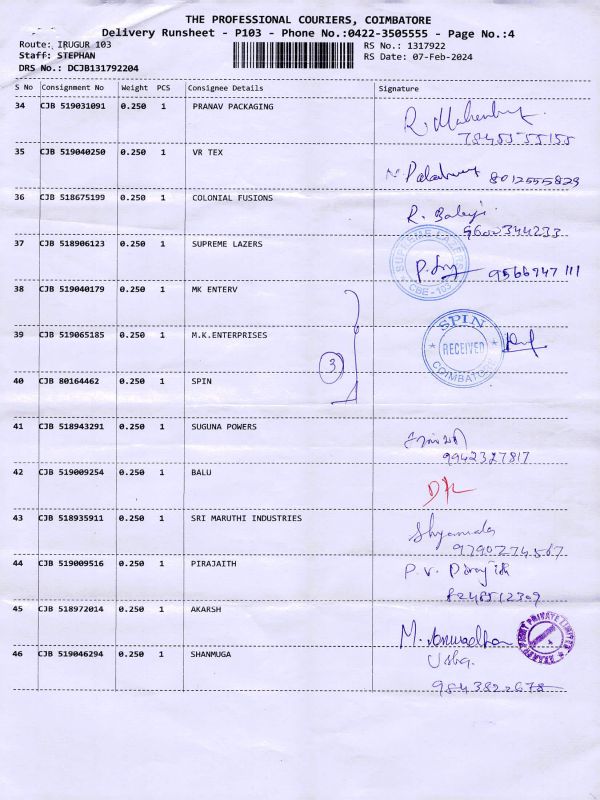 THE PROFESSIONAL COURIERS, COIMBATORE
Delivery Runsheet - P103 - Phone No.:0422-3505555 - Page No.:4
Route: IRUGUR 103 RS No.: 1317922
Staff: STEPHAN RS Date: 07-Feb-2024
DRS No.: DCJB131792204
S No Consignment No Weight PCS Consignee Details Signature
34 CJB 519031091 0.250 1 PRANAV PACKAGING
35 CJB 519040250 0.250 1 VR TEX
8012555829
36 CJB 518675199 0.250 1 COLONIAL FUSIONS R. Balaji
9600344233
37 CJB 518906123 0.250 1 SUPREME LAZERS
SUPREME LAZERS
CBE-103
9566947111
38 CJB 519040179 0.250 1 MK ENTERV
39 CJB 519065185 0.250 1 M.K.ENTERPRISES
SPIN
RECEIVED
COIMBATORE
3
40 CJB 80164462 0.250 1 SPIN
41 CJB 518943291 0.250 1 SUGUNA POWERS
9942327817
42 CJB 519009254 0.250 1 BALU
43 CJB 518935911 0.250 1 SRI MARUTHI INDUSTRIES Shyamala
9790274567
44 CJB 519009516 0.250 1 PIRAJAITH P. V.
8248512309
45 CJB 518972014 0.250 1 AKARSH M. Anuradha
PRIVATE LIMITED
46 CJB 519046294 0.250 1 SHANMUGA Usha.